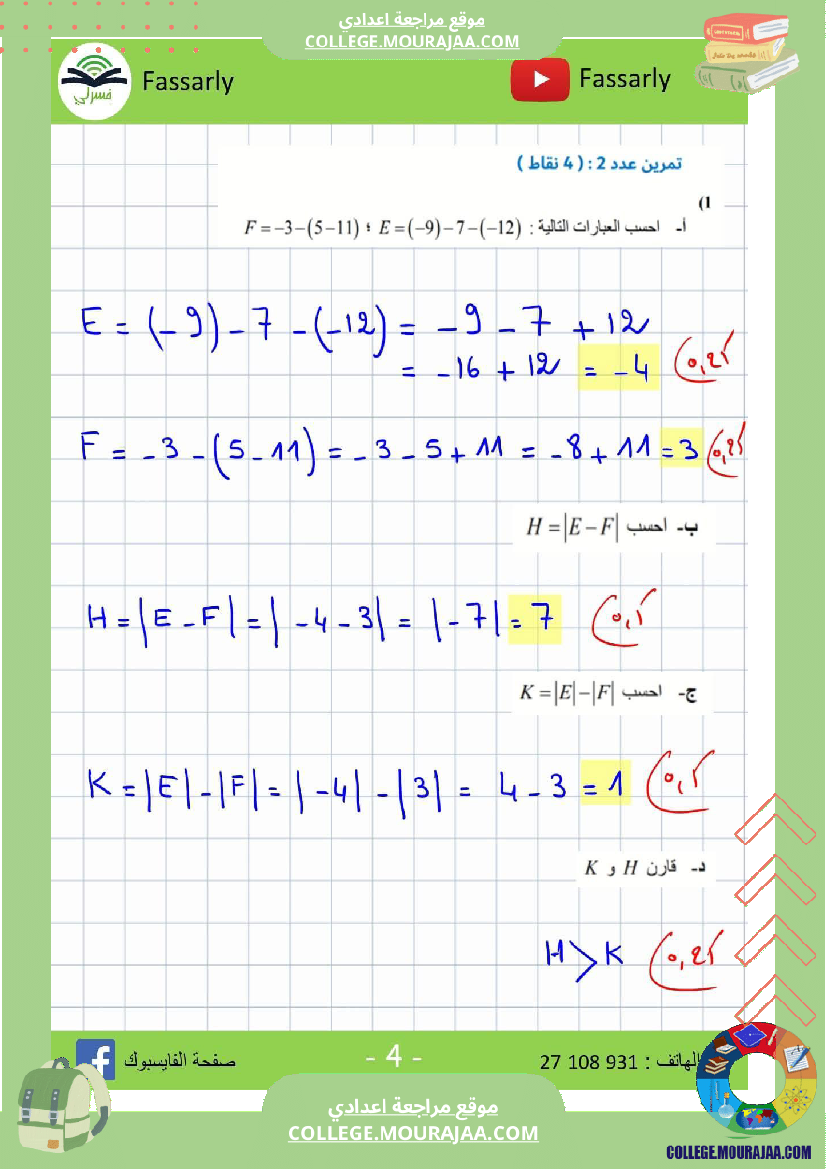 موقع مراجعة اعدادي
COLLEGE.MOURAJAA.COM
Fassarly
فسرلي
Fassarly
تمرين عدد 2 : ( 4 نقاط )
1)
أ- احسب العبارات التالية : E = (−9) − 7 − (−12) ؛ F = −3 − (5 − 11)
E = (-9) - 7 - (-12) = -9 - 7 + 12
= -16 + 12 = -4
0,25
F = -3 - (5 - 11) = -3 - 5 + 11 = -8 + 11 = 3
0,25
ب- احسب H = |E − F|
H = |E - F| = |-4 - 3| = |-7| = 7
0,5
ج- احسب K = |E| − |F|
K = |E| - |F| = |-4| - |3| = 4 - 3 = 1
0,5
د- قارن H و K
H > K
0,25
صفحة الفايسبوك
- 4 -
الهاتف : 27 108 931
موقع مراجعة اعدادي
COLLEGE.MOURAJAA.COM
COLLEGE.MOURAJAA.COM